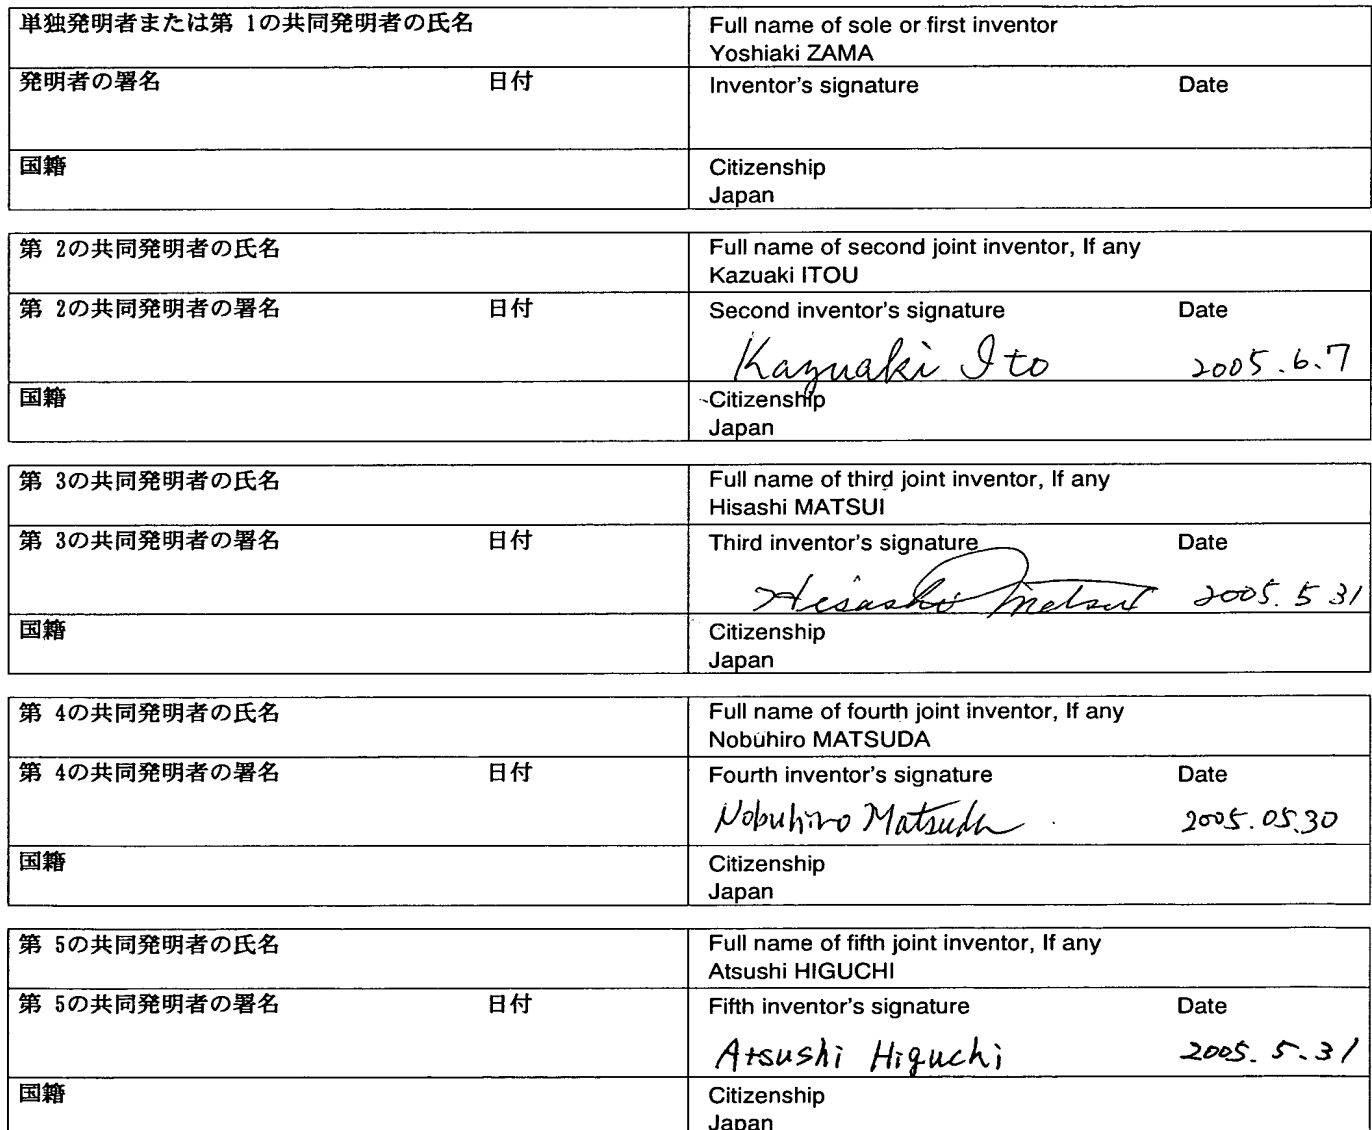 単独発明者または第 1の共同発明者の氏名
Full name of sole or first inventor
Yoshiaki ZAMA
発明者の署名 日付
Inventor's signature Date
国籍
Citizenship
Japan
第 2の共同発明者の氏名
Full name of second joint inventor, If any
Kazuaki ITOU
第 2の共同発明者の署名 日付
Second inventor's signature Date
Kazuaki Ito 2005.6.7
国籍
Citizenship
Japan
第 3の共同発明者の氏名
Full name of third joint inventor, If any
Hisashi MATSUI
第 3の共同発明者の署名 日付
Third inventor's signature Date
Hisashi Matsui 2005.5 31
国籍
Citizenship
Japan
第 4の共同発明者の氏名
Full name of fourth joint inventor, If any
Nobuhiro MATSUDA
第 4の共同発明者の署名 日付
Fourth inventor's signature Date
Nobuhiro Matsuda 2005.05.30
国籍
Citizenship
Japan
第 5の共同発明者の氏名
Full name of fifth joint inventor, If any
Atsushi HIGUCHI
第 5の共同発明者の署名 日付
Fifth inventor's signature Date
Atsushi Higuchi 2005.5.31
国籍
Citizenship
Japan